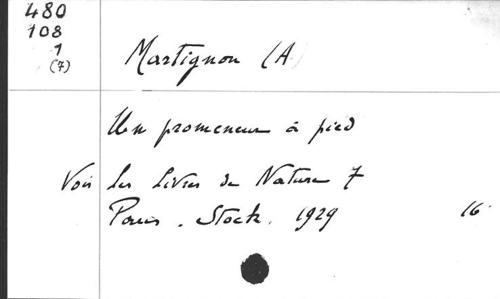 480
108
1
(7)
Martignon (A
Un promeneur à pied
Voir Les Livres de Nature 7
Paris. Stock. 1929 16